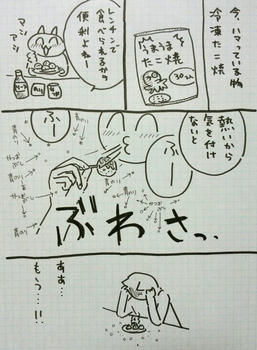 今、ハマっている物
冷凍たこ焼
うまうま
たこ焼
30コ入
レンチンで
食べられるから
便利よねー
マシ
アシ
熱いから
気を付け
ないと
ふー
ふー
青のり
かつおぶし
青のり
かつおぶし
青のり
青のり
かつおぶし
青のり
ぶわさっ、
ああ…
もうっ…!!